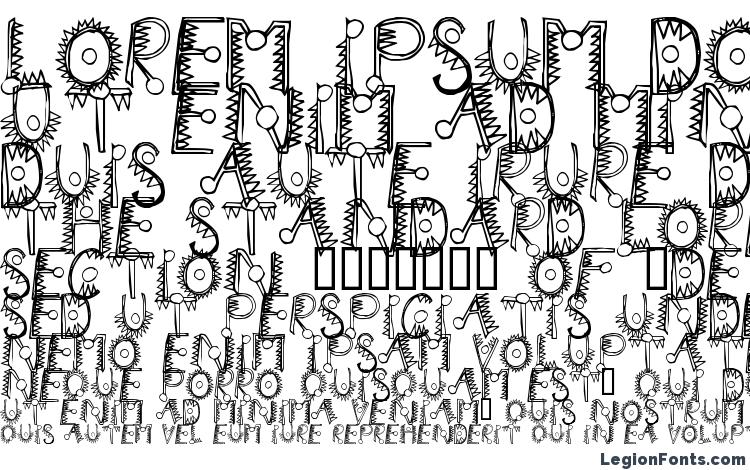 LOREM IPSUM DO
UT ENIM AD MIN
DUIS AUTE IRURE D
THE STANDARD LORE
SECTION ▯▯▯▯▯▯▯ OF ▯DE
SED UT PERSPICIATIS UND
NEMO ENIM IPSAM VOLUPTA
NEQUE PORRO QUISQUAM EST▯ QUI D
UT ENIM AD MINIMA VENIAM▯ QUIS NOSTRUM
QUIS AUTEM VEL EUM IURE REPREHENDERIT QUI IN EA VOLUPT
LegionFonts.com